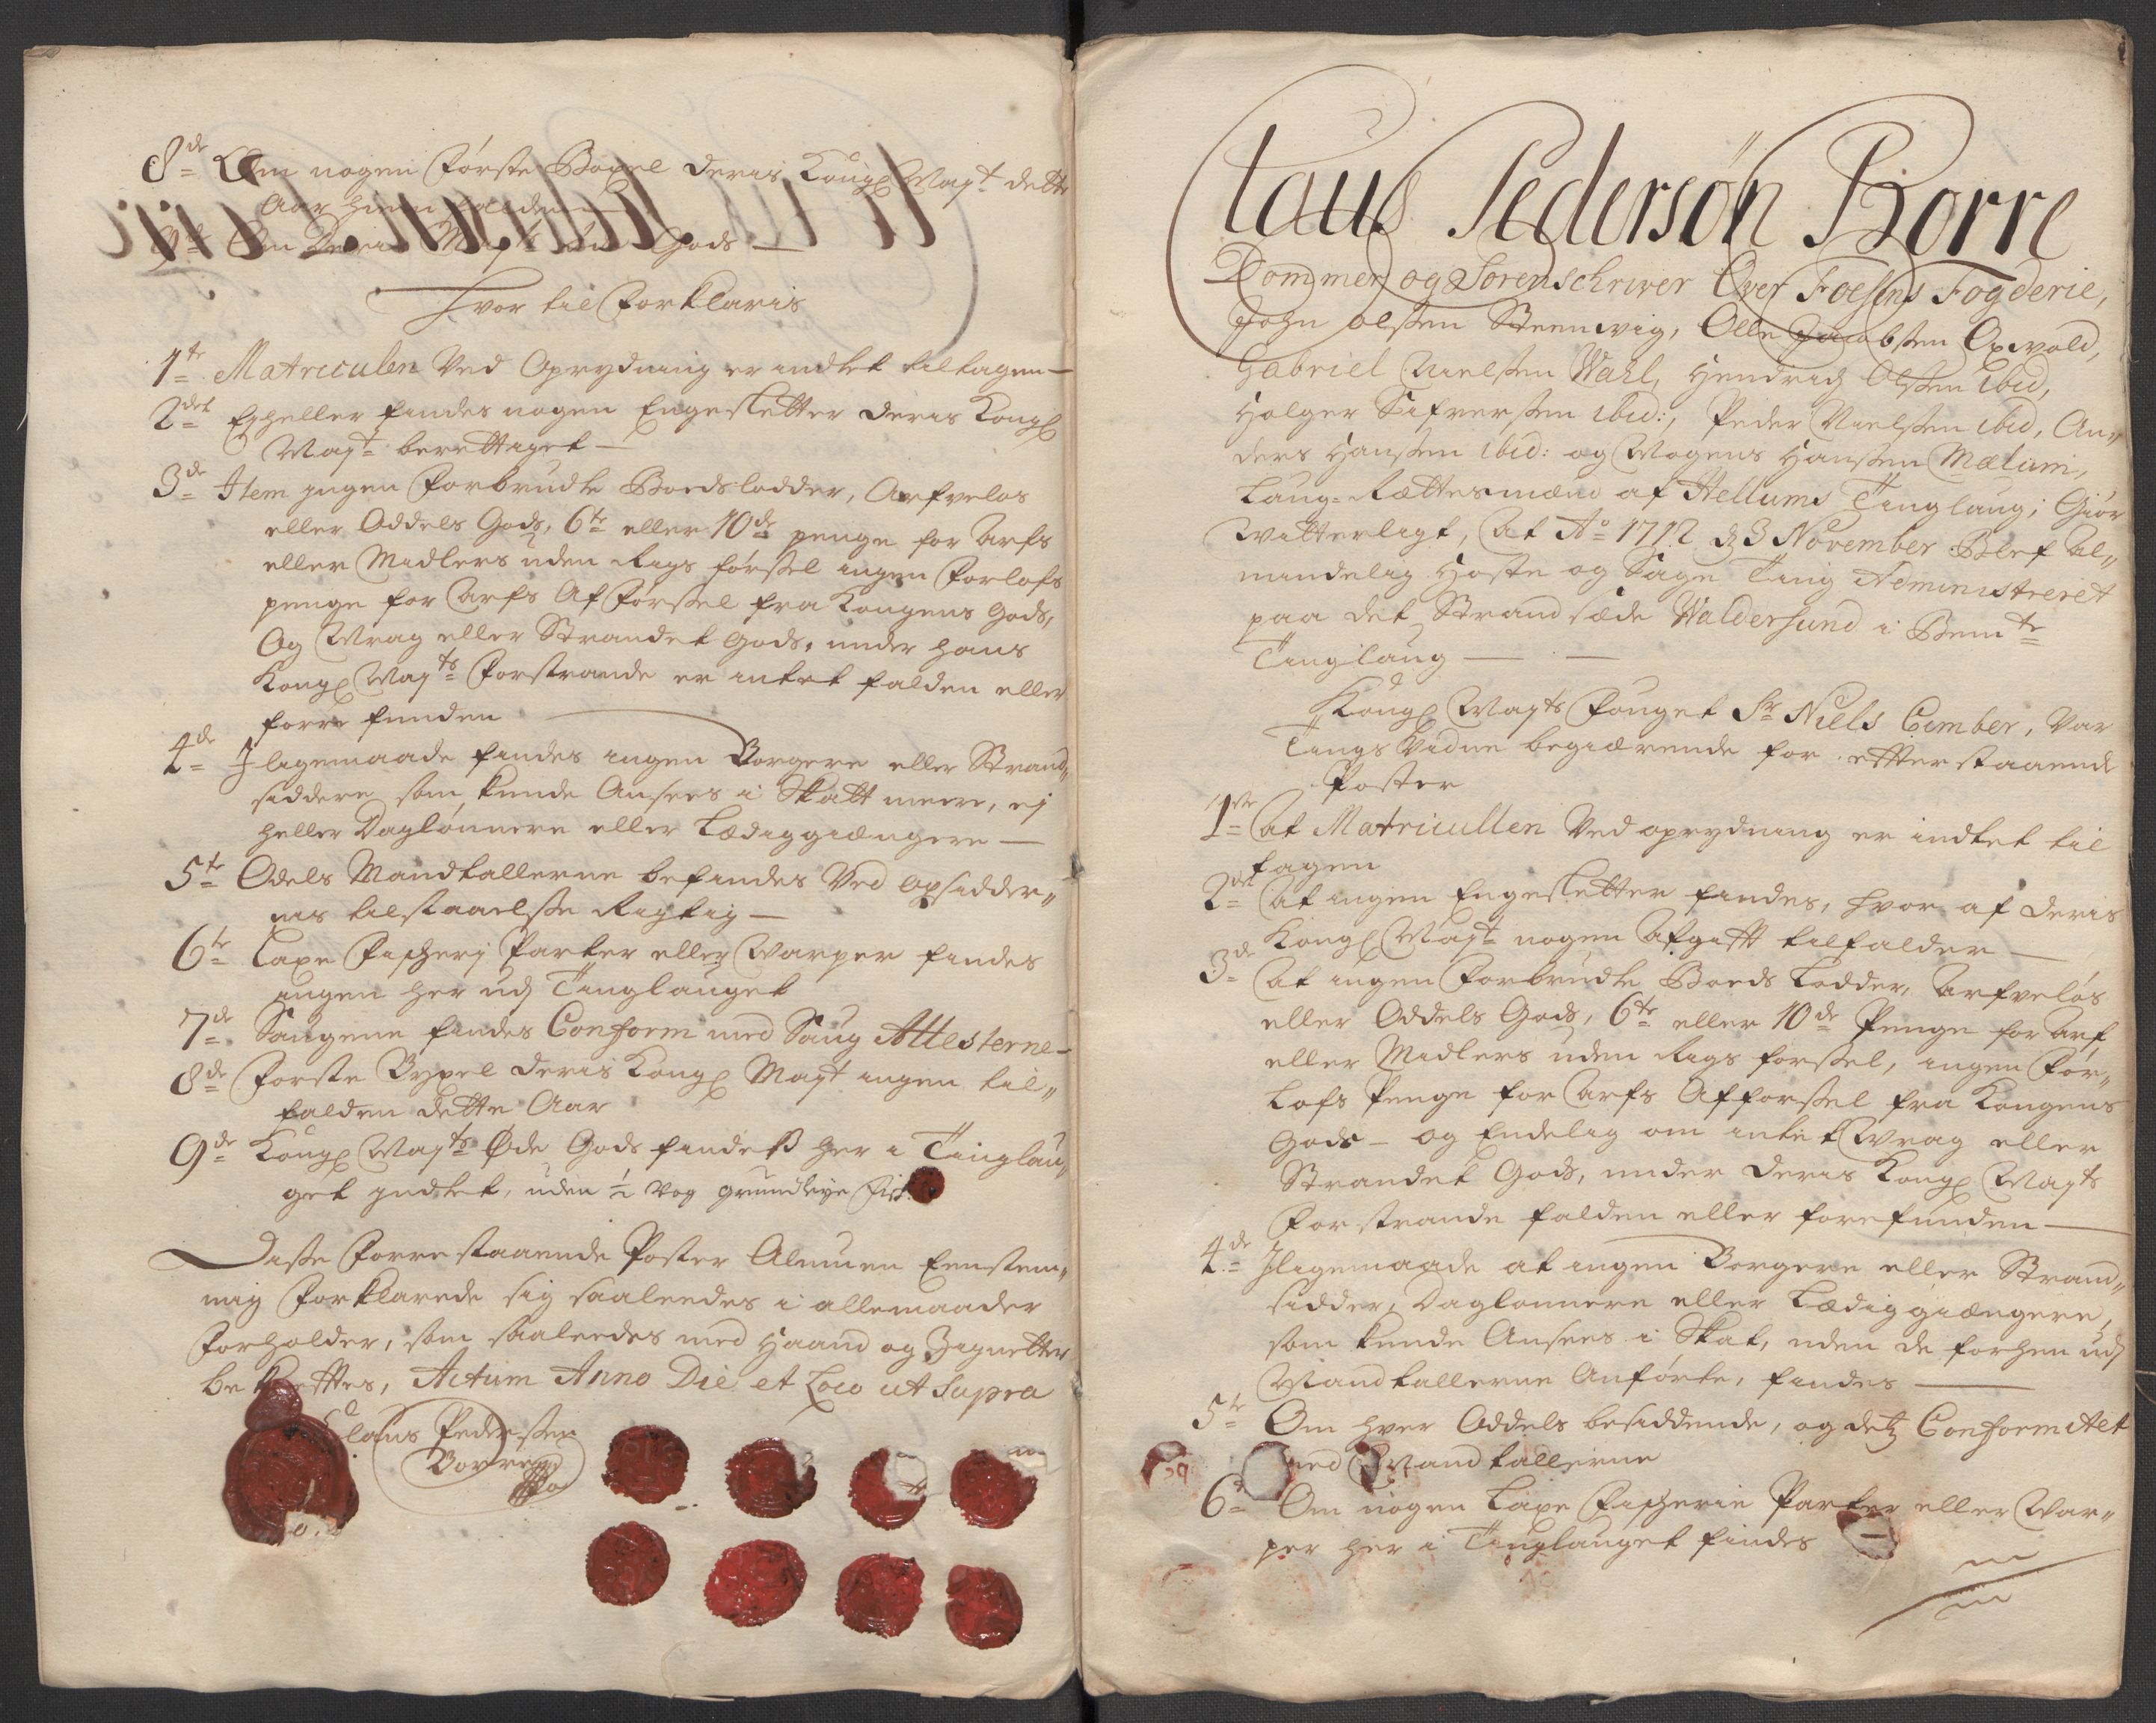 8de Om nogen Første Boxel deris Kongl Mayt dette
Aar hiemfalden
9de Om Deris Mayts øde Gods
Hvor til Forklaris
1te Matriculen Ved Oprydning er indtet tiltagen
2det Ey heller findes nogen Engesletter deris Kongl
Mayt berettiget
3de Item ingen Forbrudte Boedslodder, Arfveløs
eller Oddels Gods, 6te eller 10de penge for Arfs
eller Midlers uden Rigs førssel ingen Forlofs
penge for Arfs Afførssel fra Kongens Gods,
Og Wrag eller Strandet Gods, under hans
Kongl Mayts Forstrande er intet falden eller
forre funden
4de Iligemaade findes ingen Borgere eller Strand„
siddere som kunde Ansees i Skatt meere, ej
heller Daglønnere eller Lædiggiængere
5te Odels Mandtallerne befindes Ved Opsidder„
nis tilstaaelsse Rigtig
6te Laxe Fischerj Parter eller Warper findes
ingen her udj Tinglauget
7de Saugene findes Conform med Saug Attesterne
8de Første Bygsel deris Kongl Mayt ingen til„
falden dette Aar
9de Kongl Mayts Øde Gods findeß her i Tinglau„
get indtet, uden ½ Vog grundleye Fisk
Disse Forrestaaende Poster Almuen Eenstem„
mig Forklarede sig saaleedes i allemaader
Forholder, som saaleedes med Haand og Zignetter
bekræfftes, Actum Anno Die et Loco ut Supra
Claus Pederssen
Borre
Claus Pedersøn Borre
Dommer og Sorenschriver Over Foesens Fogderie,
John Olssen Steenwig, Olle Jacobssen Opwold,
Gabriel Nielssen Wahl, Hendrich Olssen ibid,
Holger Sifverssen ibid:, Peder Nielssen ibid, An„
ders Hanssen ibid: og Mogens Hanssen Mælum,
Laug-Rættesmænd af Stellums Tinglaug; Giør
Witterligt, At Ao 1712 d 3 November Blef Al„
mindelig Høste og Sage Ting Administreret
paa det Strandsæde Waldersund i Bemte
Tinglaug
Kongl Mayts Fouget Sr Niels Cimber, Var
Tings Vidne begiærende for efterstaaende
Poster
1te At Matricullen Ved oprydning er indtet til
tagen
2det At ingen Engesletter findes, hvor af deris
Kongl Mayt nogen Afgifft tilfalder
3de At ingen Forbrudte Boeds Lodder, Arfveløs
eller Oddels Gods, 6te eller 10de Penge for Arf
eller Midlers uden Rigs førssel, ingen For„
Lofs Penge for Arfs Afførssel fra Kongens
Gods – og Endelig om intet Wrag eller
Strandet Gods, under deris Kongl Mayts
Forstrande falden eller forefunden
4de Iligemaade at ingen Borgere eller Strand„
sidder, Daglønnere eller Lædiggiængere,
som kunde Ansees i Skat, uden de forhen udj
Mandtallerne Anførte, findes
5te Om hver Oddels besiddende, og detz Conformitet
med Mandtallerne
6te Om nogen Laxe Fischerie Parter eller War„
per her i Tinglauget findes